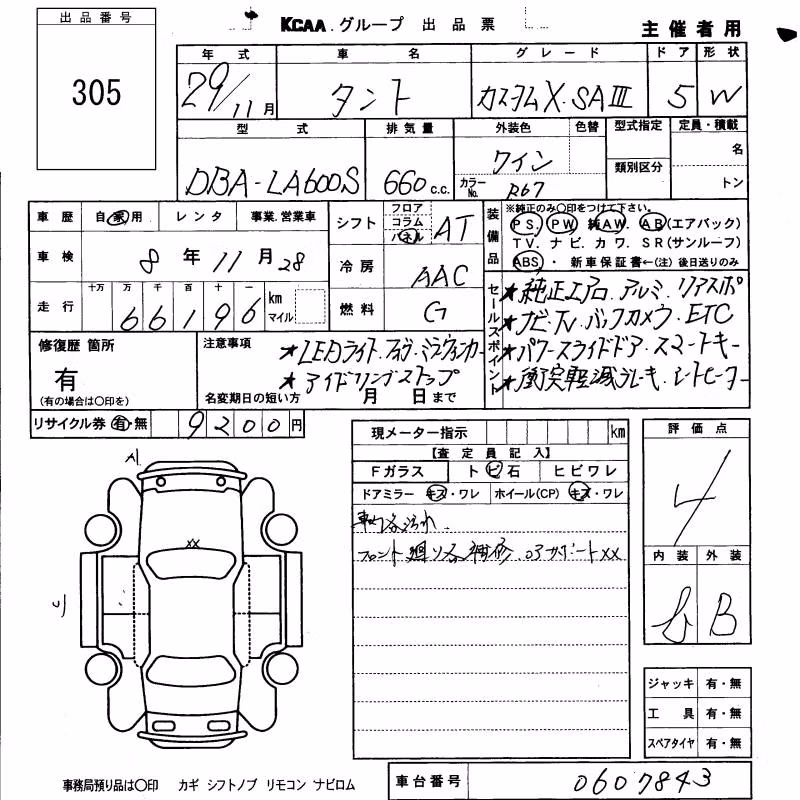 出品番号
305
KCAA グループ 出品票
主催者用
年式 車名 グレード ドア 形状
29/11月 タント カスタムX・SAⅢ 5 W
型式 排気量 外装色 色替 型式指定 定員・積載
DBA-LA600S 660 c.c. ワイン 類別区分 名
カラーNo. R67 トン
車歴 自家用 レンタ 事業.営業車
シフト フロア コラム パネル AT
装備品
※純正のみ〇印をつけて下さい。
PS. PW 純AW. AB(エアバック)
TV. ナビ. カワ. SR(サンルーフ)
ABS・新車保証書←(注)後日送りのみ
車検 8年11月28
冷房 AAC
走行 十万 万 千 百 十 一 km マイル
66196
燃料 G
セールスポイント
★純正エアロ.アルミ.リアスポ
★ナビ.TV.バックカメラ.ETC
★パワースライドドア.スマートキー
★衝突軽減ブレーキ.シートヒーター
修復歴 箇所
有
(有の場合は〇印を)
注意事項
★LEDライト.フォグ.ミラーウィンカー
★アイドリングストップ
名変期日の短い方 月 日まで
リサイクル券 有・無 9200円
現メーター指示 km
【査定員記入】
Fガラス トビ石 ヒビワレ
ドアミラー キズ・ワレ ホイール(CP) キズ・ワレ
車内各汚れ.
フロント廻り各補修.コアサポートXX
評価点
4
内装 外装
b B
A1
XX
ジャッキ 有・無
工具 有・無
スペアタイヤ 有・無
事務局預り品は〇印 カギ シフトノブ リモコン ナビロム
車台番号 0607843